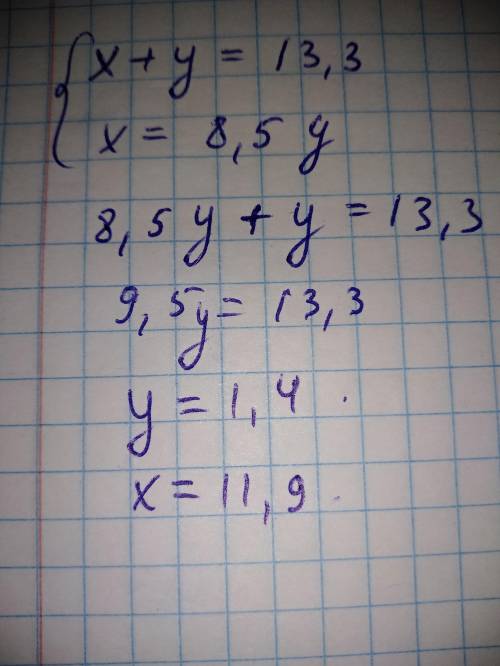 { x + y = 13,3
x = 8,5 y
8,5 y + y = 13,3
9,5y = 13,3
y = 1,4.
x = 11,9.